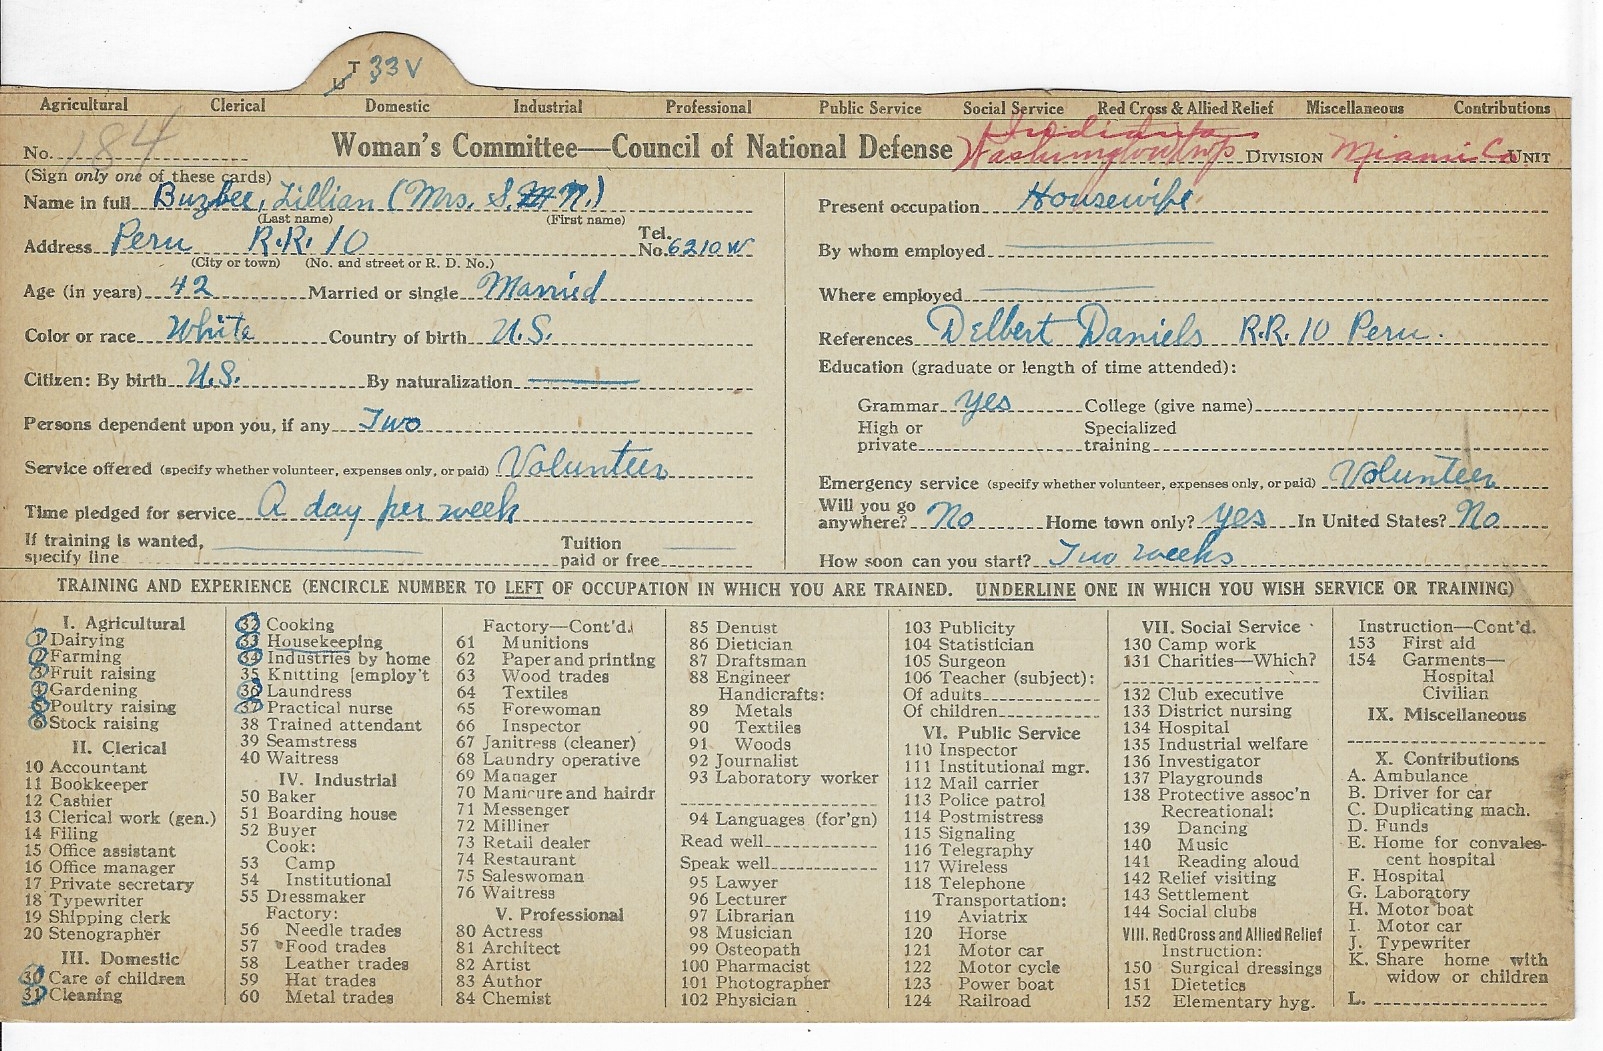 T 33 V
U
Agricultural Clerical Domestic Industrial Professional Public Service Social Service Red Cross & Allied Relief Miscellaneous Contributions
No. 184 Woman's Committee—Council of National Defense Indiana Washington twp DIVISION Miami Co UNIT
(Sign only one of these cards)
Name in full Buzbee, Lillian (Mrs. S. N.)
(Last name) (First name)
Address Peru R.R. 10 Tel. No. 6210 W
(City or town) (No. and street or R. D. No.)
Age (in years) 42 Married or single Married
Color or race White Country of birth U.S.
Citizen: By birth U.S. By naturalization
Persons dependent upon you, if any Two
Service offered (specify whether volunteer, expenses only, or paid) Volunteer
Time pledged for service A day per week
If training is wanted, specify line Tuition paid or free
Present occupation Housewife
By whom employed
Where employed
References Delbert Daniels R.R. 10 Peru.
Education (graduate or length of time attended):
Grammar yes College (give name)
High or private Specialized training
Emergency service (specify whether volunteer, expenses only, or paid) Volunteer
Will you go anywhere? No Home town only? yes In United States? No
How soon can you start? Two weeks
TRAINING AND EXPERIENCE (ENCIRCLE NUMBER TO LEFT OF OCCUPATION IN WHICH YOU ARE TRAINED. UNDERLINE ONE IN WHICH YOU WISH SERVICE OR TRAINING)
I. Agricultural
1 Dairying
2 Farming
3 Fruit raising
4 Gardening
5 Poultry raising
6 Stock raising
II. Clerical
10 Accountant
11 Bookkeeper
12 Cashier
13 Clerical work (gen.)
14 Filing
15 Office assistant
16 Office manager
17 Private secretary
18 Typewriter
19 Shipping clerk
20 Stenographer
III. Domestic
30 Care of children
31 Cleaning
32 Cooking
33 Housekeeping
34 Industries by home
35 Knitting [employ't
36 Laundress
37 Practical nurse
38 Trained attendant
39 Seamstress
40 Waitress
IV. Industrial
50 Baker
51 Boarding house
52 Buyer
Cook:
53 Camp
54 Institutional
55 Dressmaker
Factory:
56 Needle trades
57 Food trades
58 Leather trades
59 Hat trades
60 Metal trades
Factory—Cont'd.
61 Munitions
62 Paper and printing
63 Wood trades
64 Textiles
65 Forewoman
66 Inspector
67 Janitress (cleaner)
68 Laundry operative
69 Manager
70 Manicure and hairdr
71 Messenger
72 Milliner
73 Retail dealer
74 Restaurant
75 Saleswoman
76 Waitress
V. Professional
80 Actress
81 Architect
82 Artist
83 Author
84 Chemist
85 Dentist
86 Dietician
87 Draftsman
88 Engineer
Handicrafts:
89 Metals
90 Textiles
91 Woods
92 Journalist
93 Laboratory worker
94 Languages (for'gn)
Read well
Speak well
95 Lawyer
96 Lecturer
97 Librarian
98 Musician
99 Osteopath
100 Pharmacist
101 Photographer
102 Physician
103 Publicity
104 Statistician
105 Surgeon
106 Teacher (subject):
Of adults
Of children
VI. Public Service
110 Inspector
111 Institutional mgr.
112 Mail carrier
113 Police patrol
114 Postmistress
115 Signaling
116 Telegraphy
117 Wireless
118 Telephone
Transportation:
119 Aviatrix
120 Horse
121 Motor car
122 Motor cycle
123 Power boat
124 Railroad
VII. Social Service
130 Camp work
131 Charities—Which?
132 Club executive
133 District nursing
134 Hospital
135 Industrial welfare
136 Investigator
137 Playgrounds
138 Protective assoc'n
Recreational:
139 Dancing
140 Music
141 Reading aloud
142 Relief visiting
143 Settlement
144 Social clubs
VIII. Red Cross and Allied Relief
Instruction:
150 Surgical dressings
151 Dietetics
152 Elementary hyg.
Instruction—Cont'd.
153 First aid
154 Garments—
Hospital
Civilian
IX. Miscellaneous
X. Contributions
A. Ambulance
B. Driver for car
C. Duplicating mach.
D. Funds
E. Home for convales-
cent hospital
F. Hospital
G. Laboratory
H. Motor boat
I. Motor car
J. Typewriter
K. Share home with
widow or children
L.